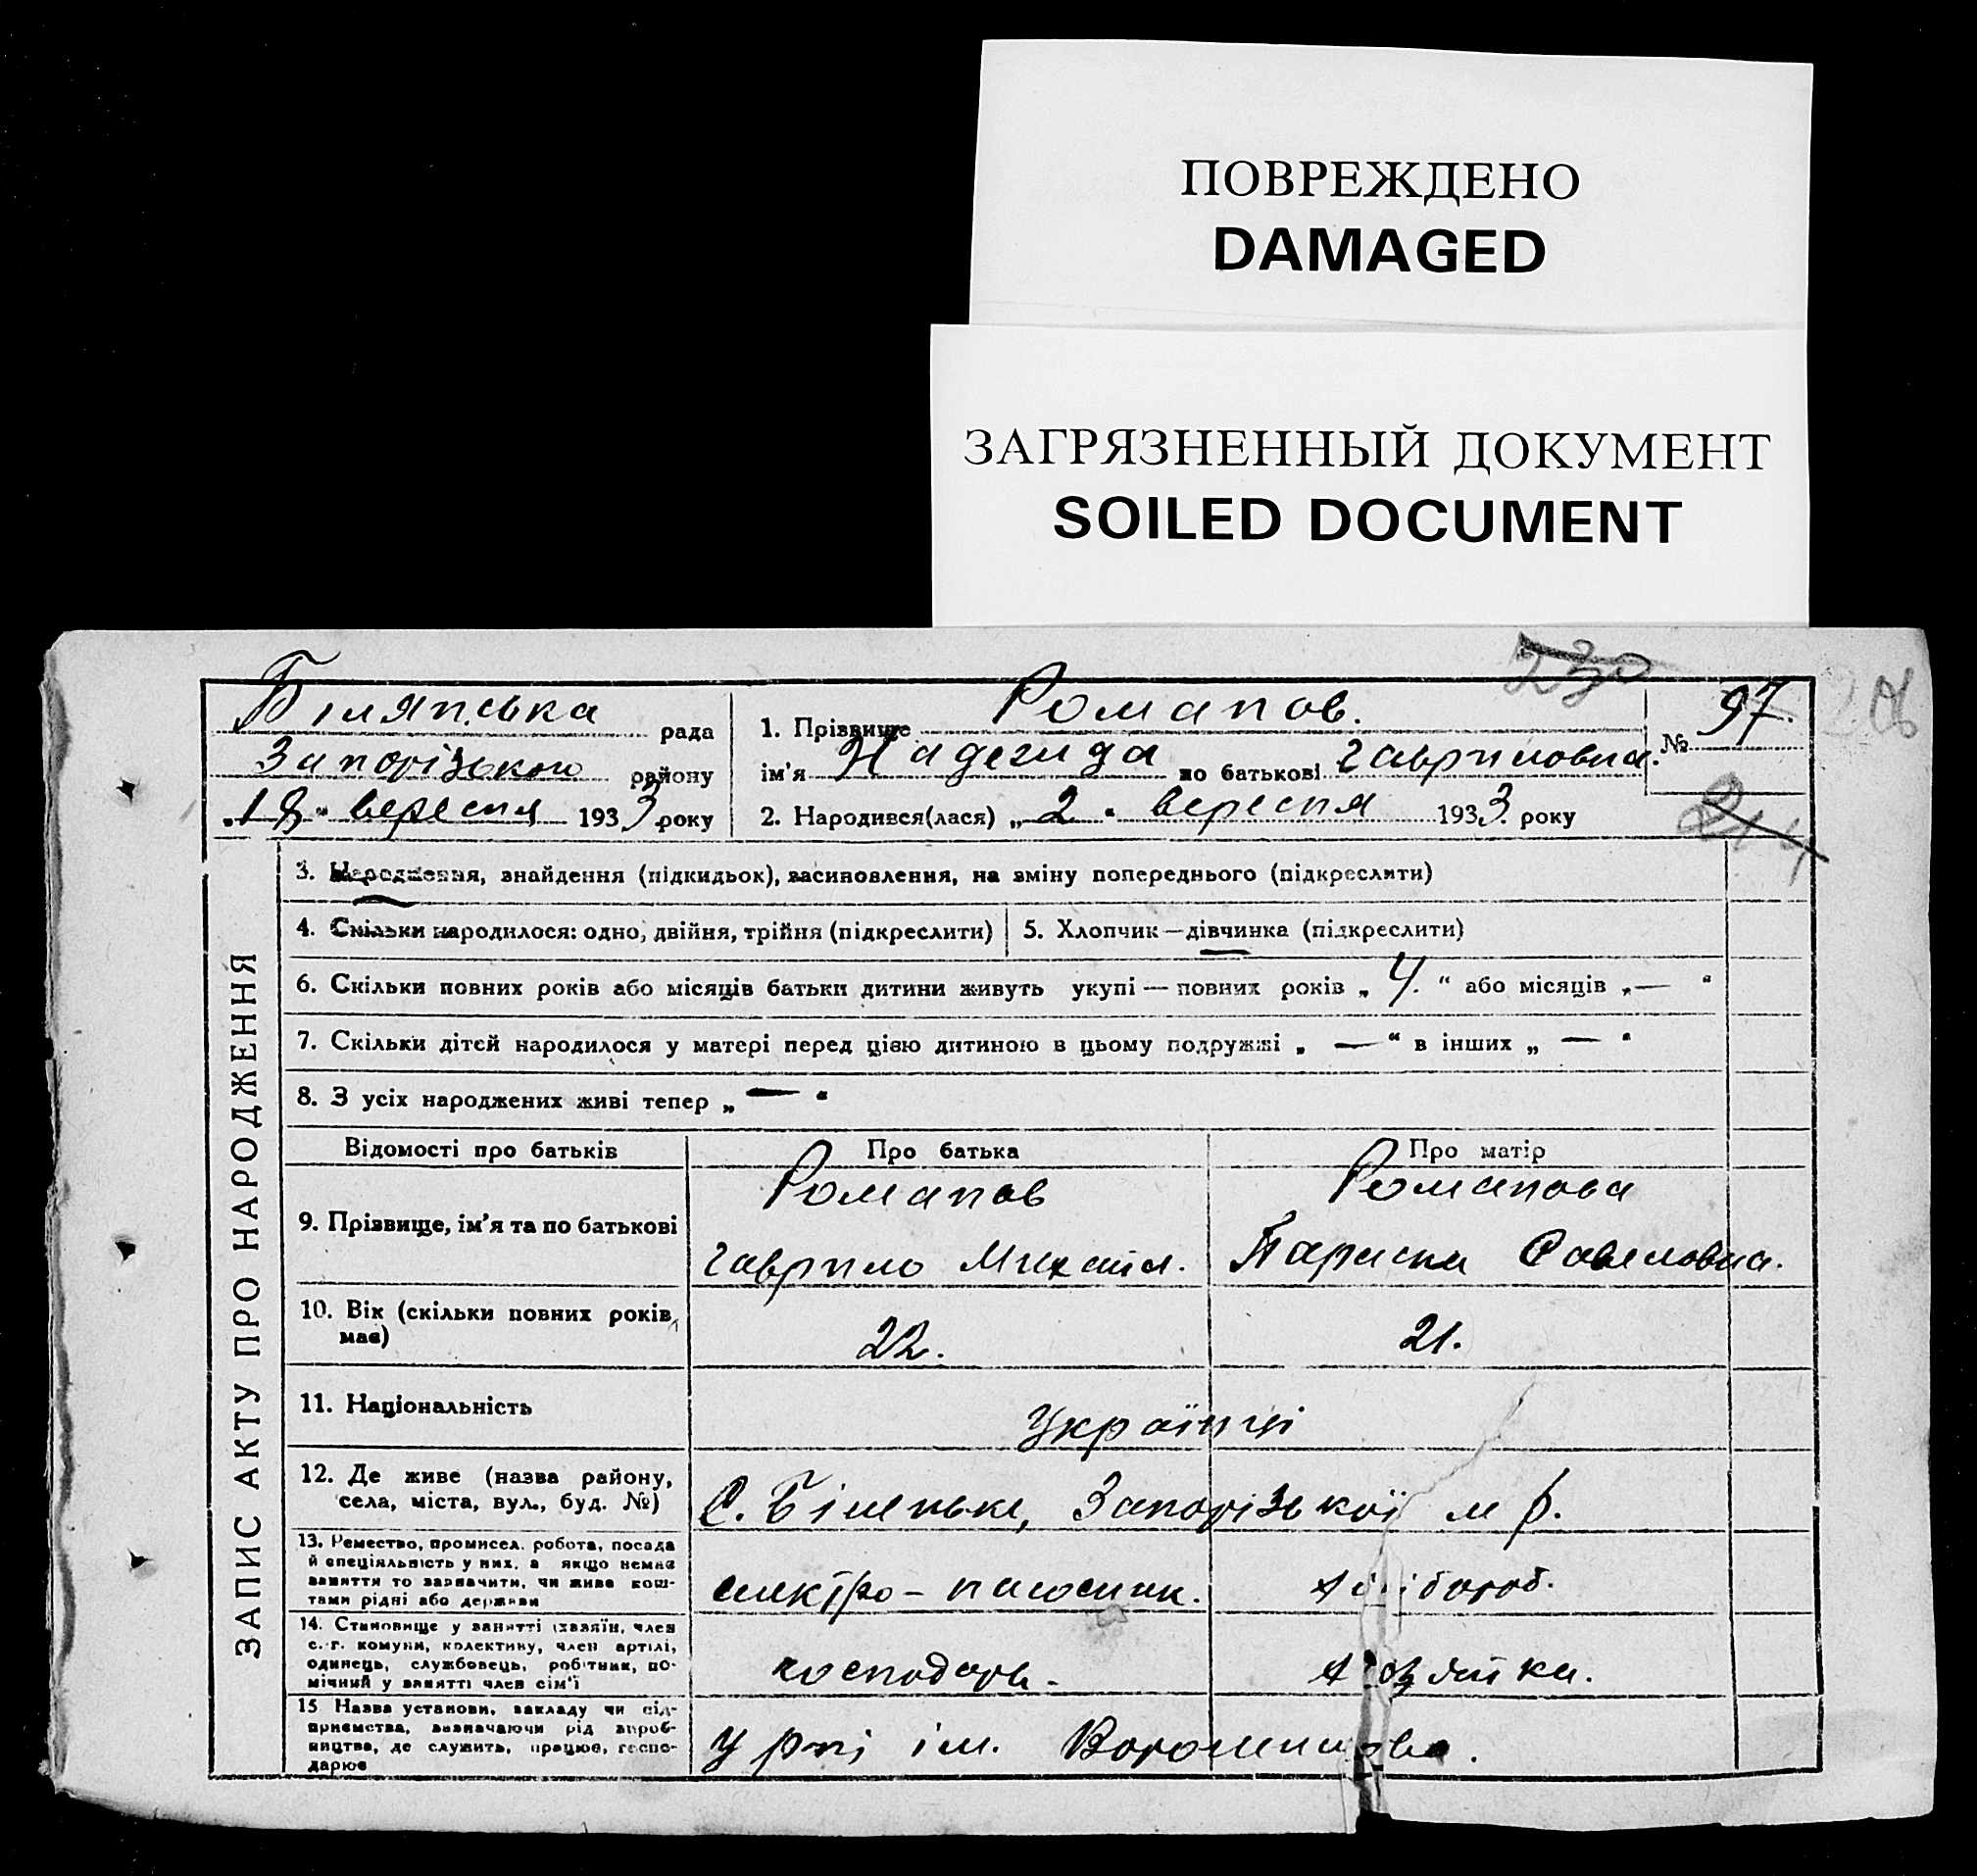 ПОВРЕЖДЕНО
DAMAGED
ЗАГРЯЗНЕННЫЙ ДОКУМЕНТ
SOILED DOCUMENT
230
Білянська рада
Запорізького району
„18“ вересня 1933 року
1. Прізвище Романов.
ім'я Надегида по батькові Гавриловна.
2. Народився(лася) „2“ вересня 1933 року
№ 97.
214
ЗАПИС АКТУ ПРО НАРОДЖЕННЯ
3. Народження, знайдення (підкидьок), засиновлення, на зміну попереднього (підкреслити)
4. Скільки народилося: одно, двійня, трійня (підкреслити) 5. Хлопчик — дівчинка (підкреслити)
6. Скільки повних років або місяців батьки дитини живуть укупі — повних років „4.“ або місяців „—“
7. Скільки дітей народилося у матері перед цією дитиною в цьому подружжі „—“ в інших „—“
8. З усіх народжених живі тепер „—“
Відомості про батьків Про батька Про матір
9. Прізвище, ім'я та по батькові
Романов
Гаврило Михайл.
Романова
Параска Савеловна.
10. Вік (скільки повних років має)
22.
21.
11. Національність
Українці
12. Де живе (назва району,
села, міста, вул., буд. №)
С. Біленьке, Запорізької м р.
13. Ремество, промисел, робота, посада
й спеціяльність у них, а якщо немає
заняття то зазначити, чи живе кош-
тами рідні або держави
електро-
хлібороб.
14. Становище у занятті (хазяїн, член
с.-г. комуни, колективу, член артілі,
одинець, службовець, робітник, по-
мічний у занятті член сім'ї
господарь.
хозяйка.
15 Назва установи, закладу чи під-
приємства, визначаючи рід вироб-
ництва, де служить, працює, госпо-
дарює
У ім. Ворошилова.